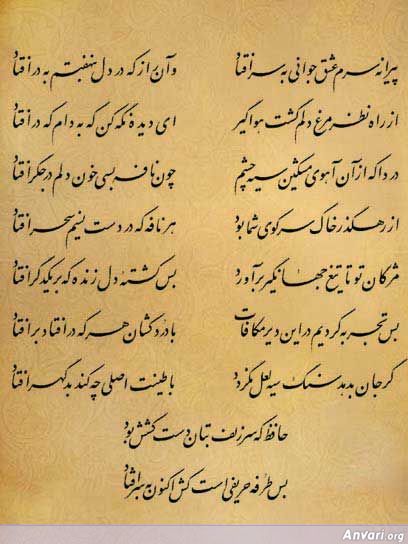 پیرانه سرم عشق جوانی به سر افتاد وآن راز که در دل بنهفتم به در افتاد
از راه نظر مرغ دلم گشت هواگیر ای دیده نگه کن که به دام که در افتاد
دردا که از آن آهوی مشکین سیه چشم چون نافه بسی خون دلم در جگر افتاد
از رهگذر خاک سر کوی شما بود هر نافه که در دست نسیم سحر افتاد
مژگان تو تا تیغ جهانگیر برآورد بس کشته دل زنده که بر یکدگر افتاد
بس تجربه کردیم در این دیر مکافات با دردکشان هر که در افتاد بر افتاد
گر جان بدهد سنگ سیه لعل نگردد با طینت اصلی چه کند بدگهر افتاد
حافظ که سر زلف بتان دست کشش بود
بس طرفه حریفی است کش اکنون به سر افتاد
Anvari.org